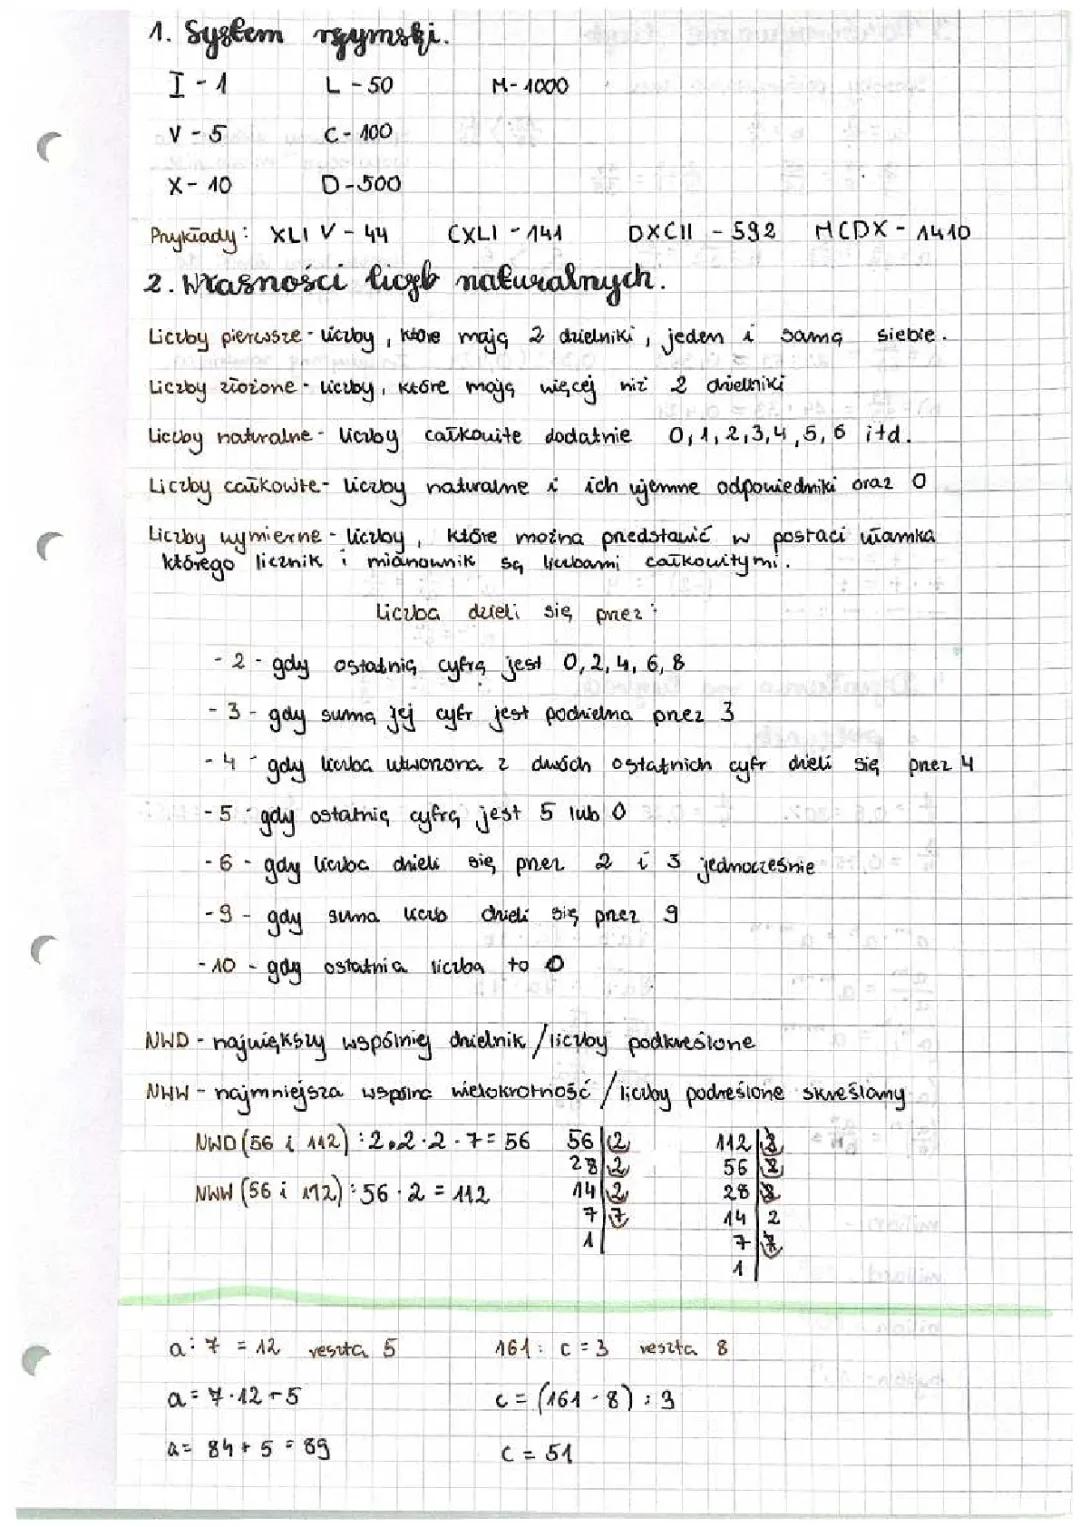 1. System rzymski.
I - 1 L - 50 M - 1000
V - 5 C - 100
X - 10 D - 500
Przykłady: XLIV - 44 CXLI - 141 DXCII - 592 MCDX - 1410
2. Własności liczb naturalnych.
Liczby pierwsze - liczby, które mają 2 dzielniki, jeden i samą siebie.
Liczby złożone - liczby, które mają więcej niż 2 dzielniki
Liczby naturalne - liczby całkowite dodatnie 0,1,2,3,4,5,6 itd.
Liczby całkowite - liczby naturalne i ich ujemne odpowiedniki oraz 0
Liczby wymierne - liczby, które można przedstawić w postaci ułamka
którego licznik i mianownik są liczbami całkowitymi.
Liczba dzieli się przez:
- 2 - gdy ostatnią cyfrą jest 0,2,4,6,8
- 3 - gdy sumą jej cyfr jest podzielna przez 3
- 4 - gdy liczba utworzona z dwóch ostatnich cyfr dzieli się przez 4
- 5 - gdy ostatnią cyfrą jest 5 lub 0
- 6 - gdy liczba dzieli się przez 2 i 3 jednocześnie
- 9 - gdy suma liczb dzieli się przez 9
- 10 - gdy ostatnia liczba to 0
NWD - największy wspólnięj dzielnik / liczby podkreślone
NWW - najmniejsza wspólna wielokrotność / liczby podreślone skreślamy
NWD (56 i 112) : 2·2·2·7 = 56 56 | 2 112 | 2
28 | 2 56 | 2
NWW (56 i 112) : 56 · 2 = 112 14 | 2 28 | 2
7 | 7 14 | 2
1 | 7 | 7
1 |
a : 7 = 12 reszta 5 161 : c = 3 reszta 8
a = 7·12+5 c = (161 - 8) : 3
a = 84 + 5 = 89 c = 51